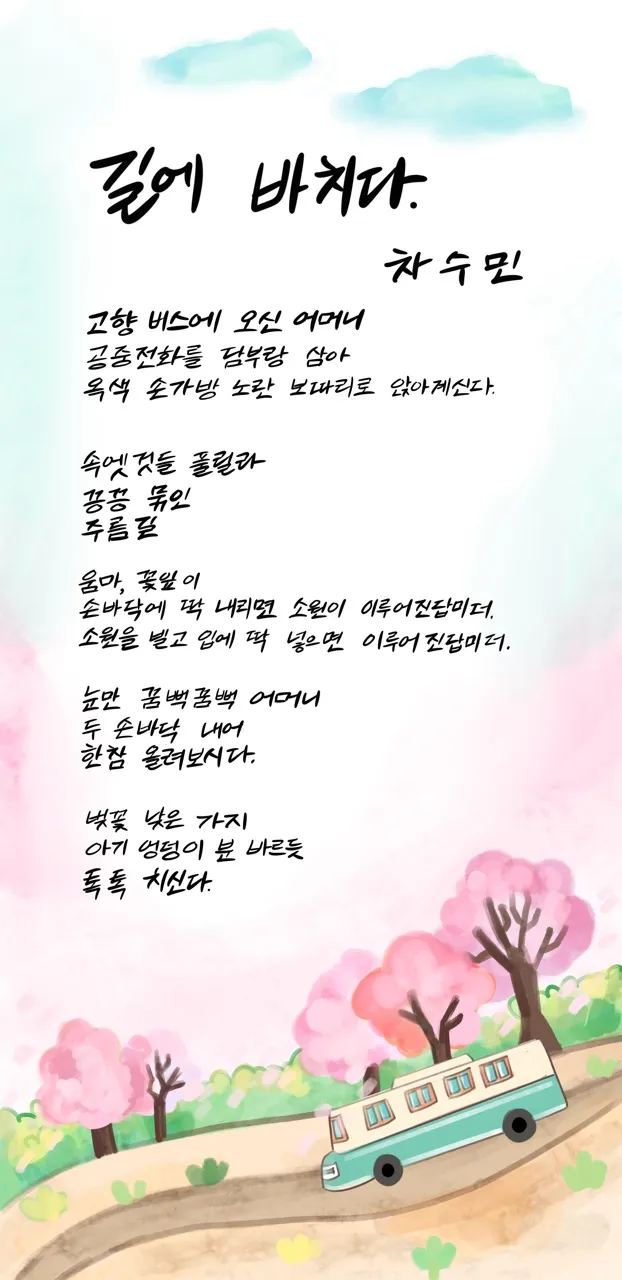 길에 바치다.
차수민
고향 버스에 오신 어머니
공중전화를 담부랑 삼아
옥색 손가방 노란 보따리로 앉아계신다.
속엣것들 풀릴라
끙끙 묶인
주름길
움마, 꽃잎이
손바닥에 딱 내리면 소원이 이루어진답미더.
소원을 빌고 입에 딱 넣으면 이루어진답미더.
눈만 꿈뻑꿈뻑 어머니
두 손바닥 내어
한참 올려보시다.
벚꽃 낮은 가지
아기 엉덩이 분 바르듯
톡톡 치신다.